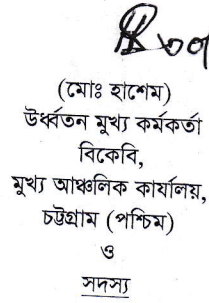 (মোঃ হাশেম)
উর্ধ্বতন মুখ্য কর্মকর্তা
বিকেবি,
মুখ্য আঞ্চলিক কার্যালয়,
চট্টগ্রাম (পশ্চিম)
ও
সদস্য